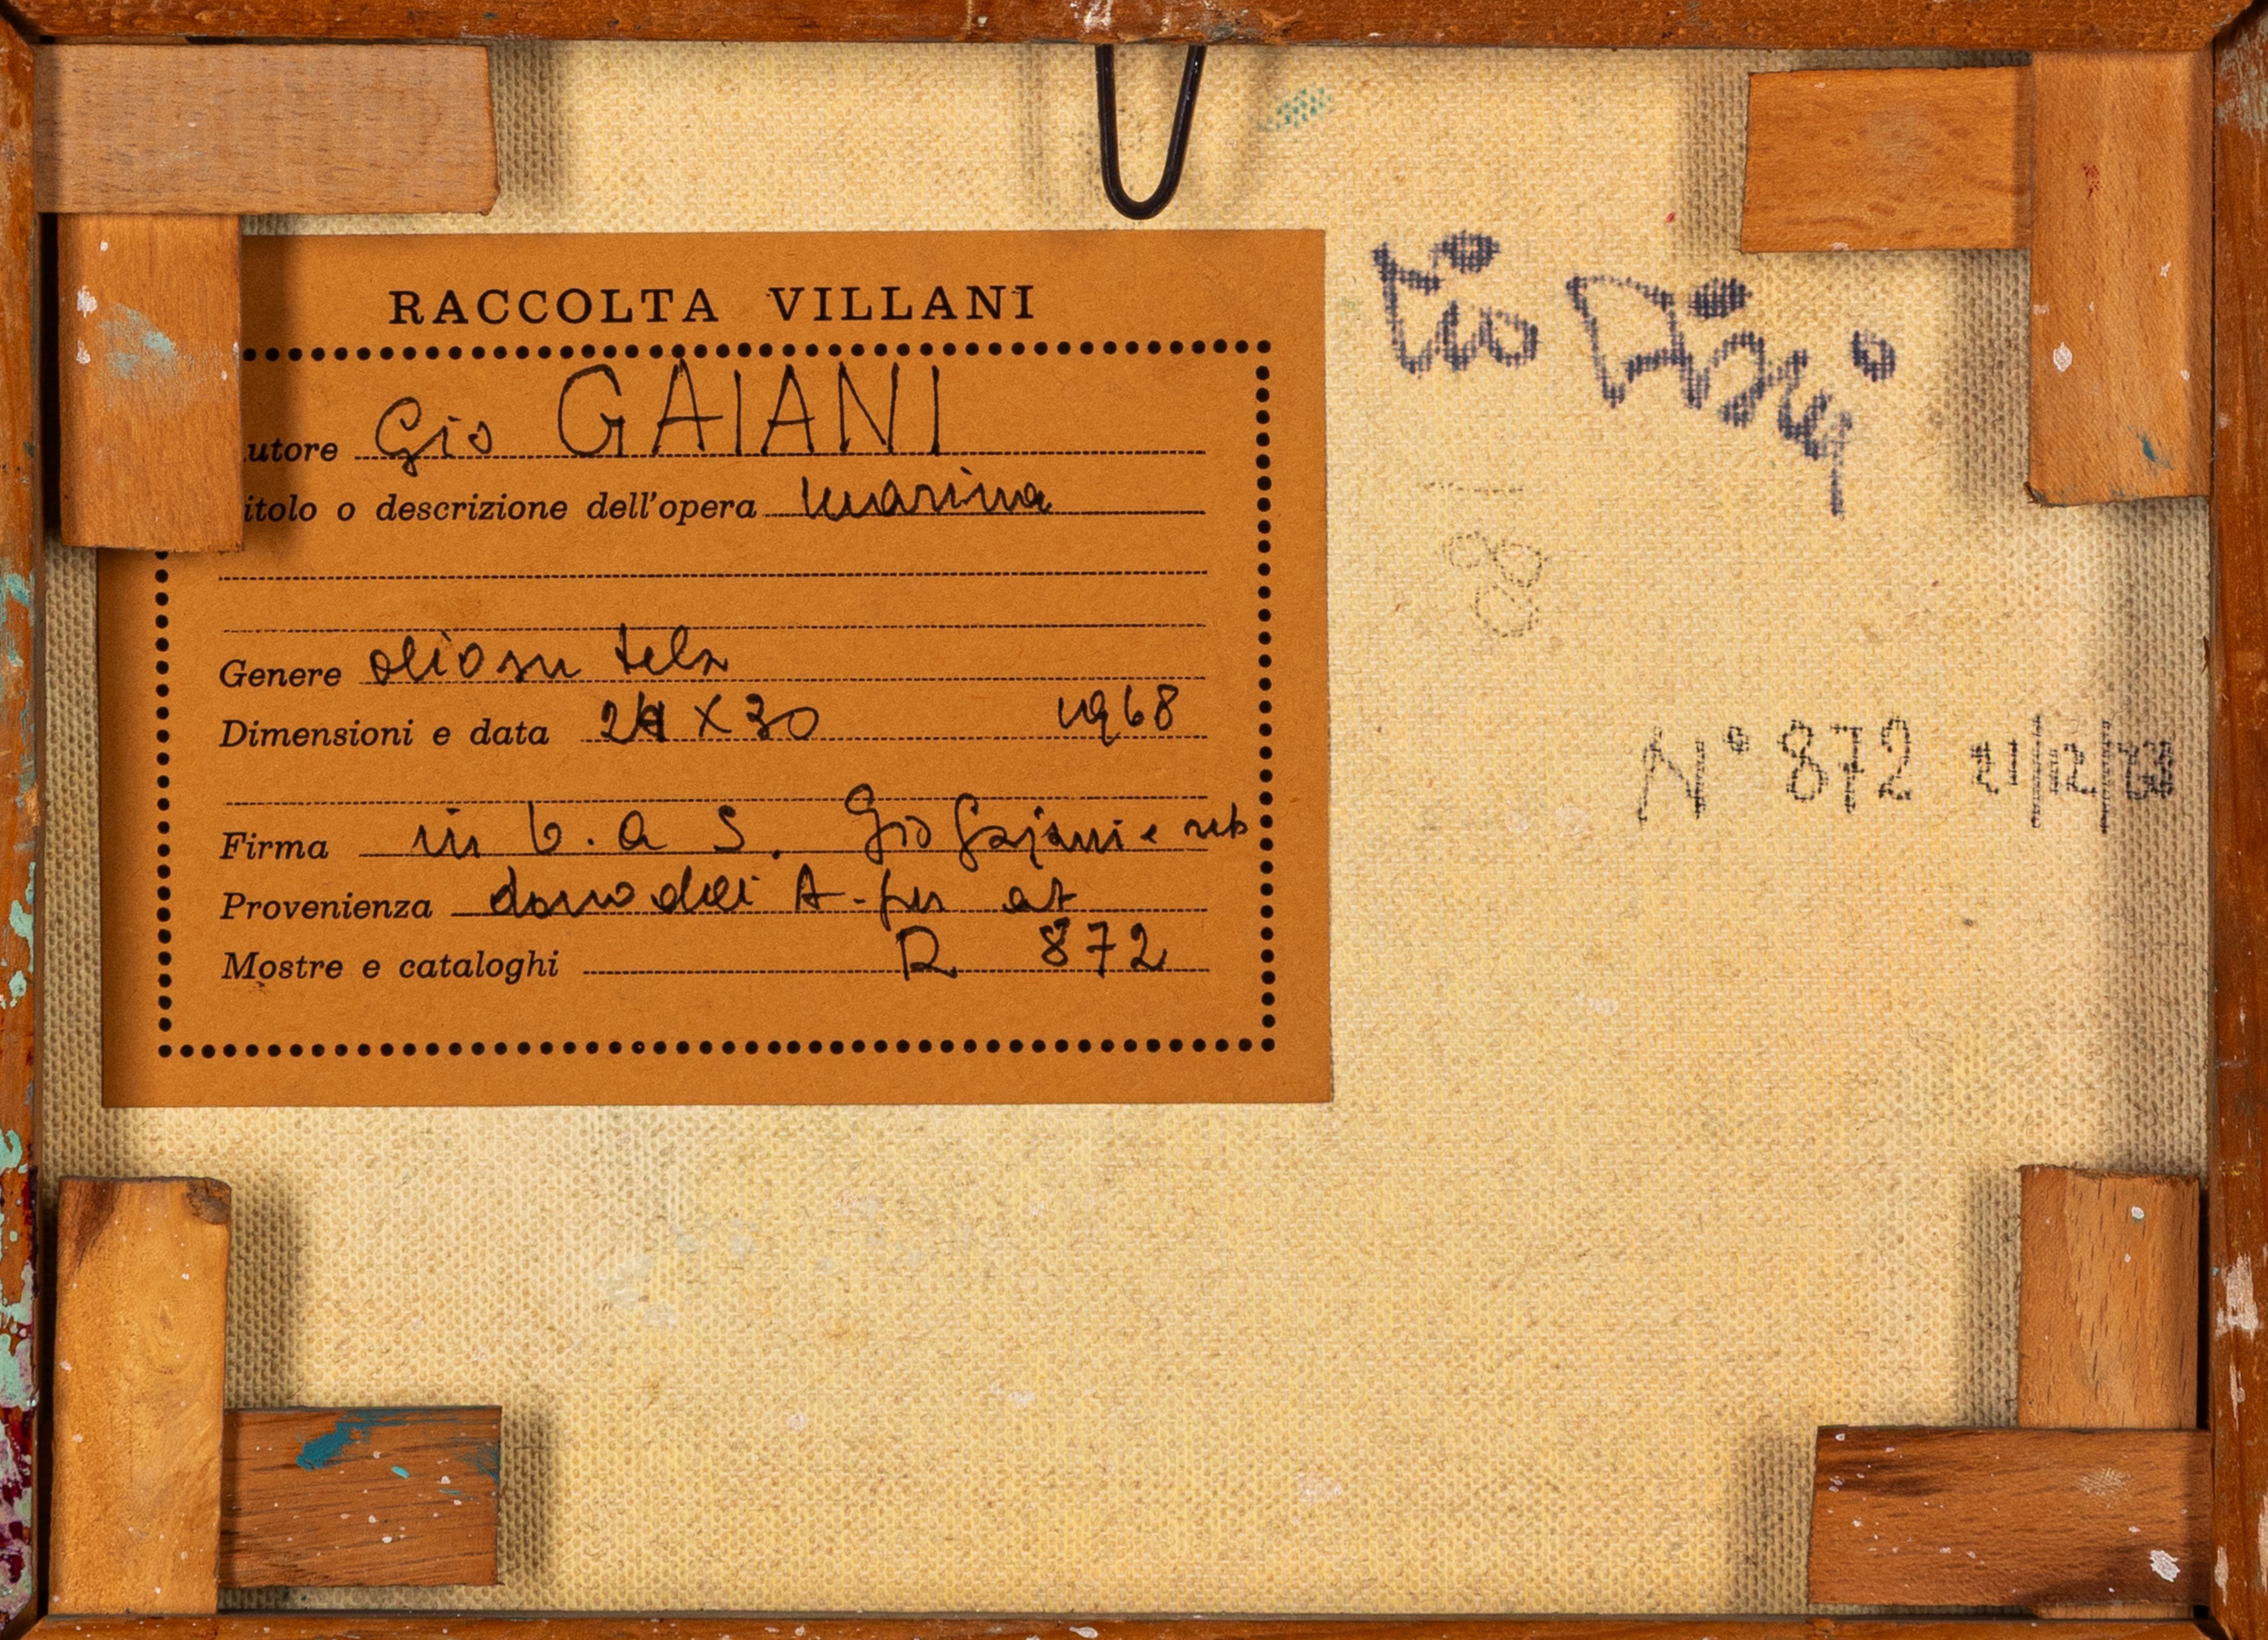 RACCOLTA VILLANI
utore Gio GAIANI
itolo o descrizione dell'opera marina
Genere olio su tela
Dimensioni e data 24 X 30 1968
Firma in b. a S. Gio Gajani e
Provenienza dono dell' A. per
Mostre e cataloghi R 872
81
N° 872 21/12/68